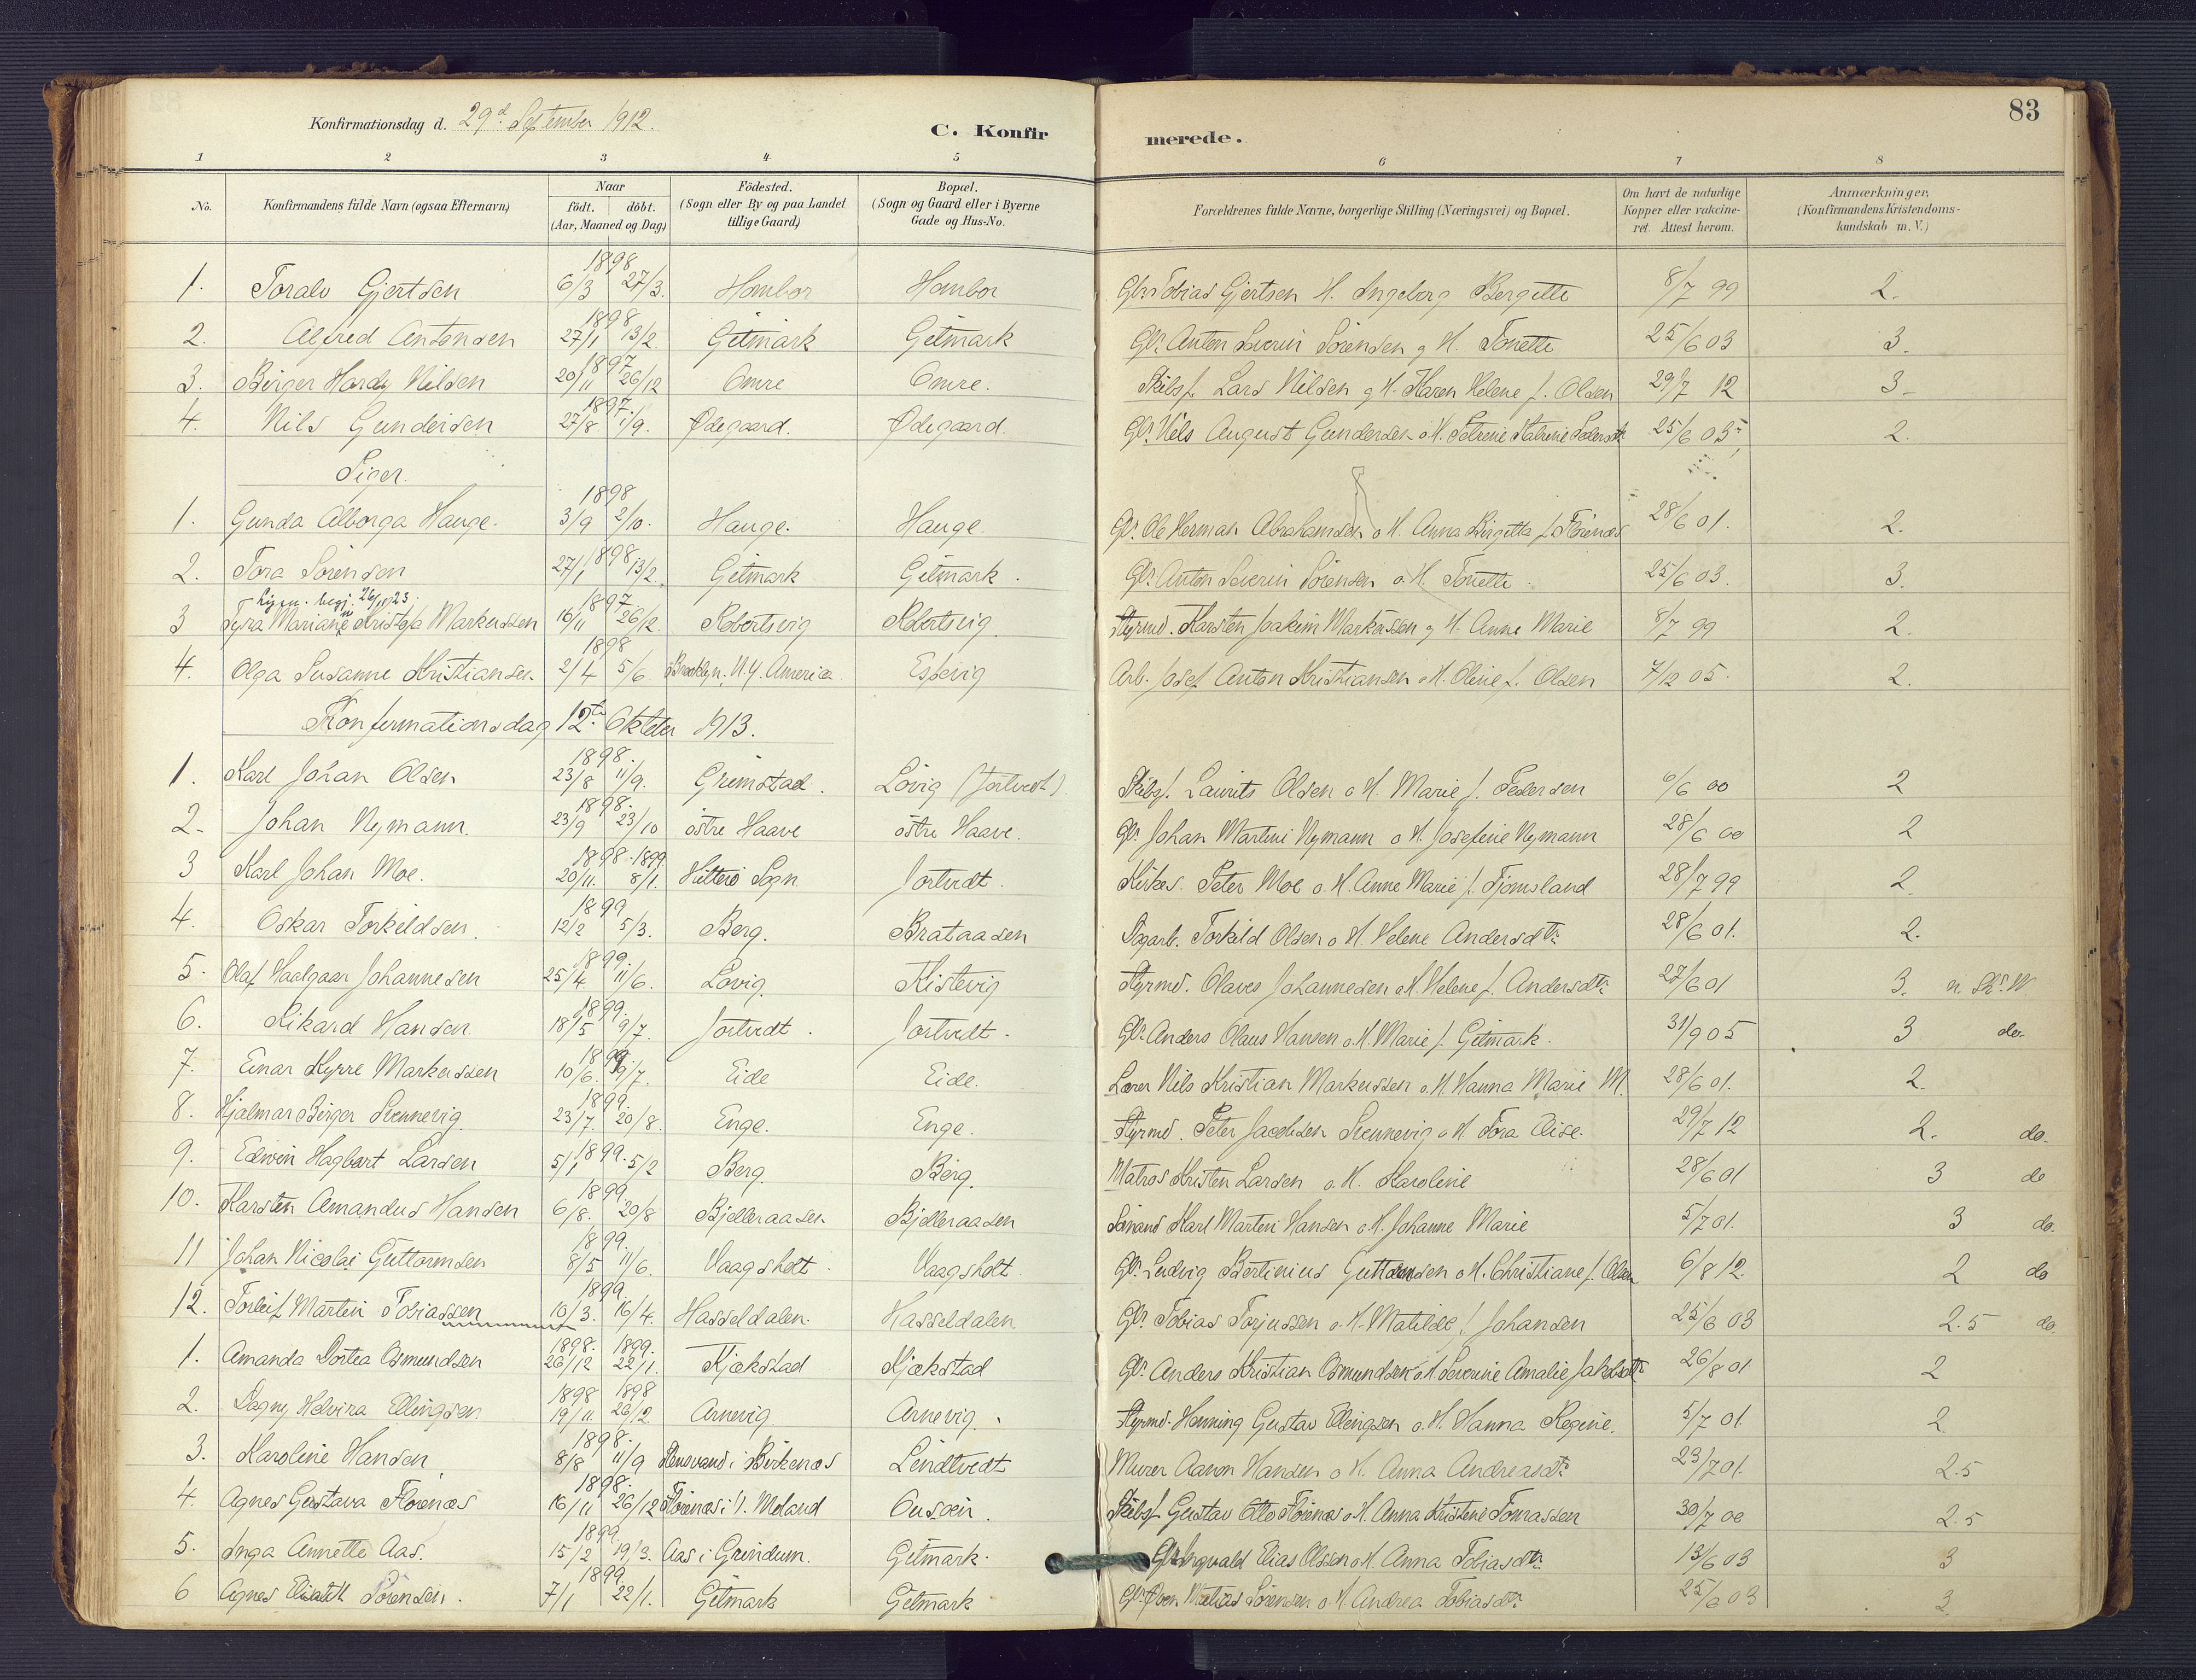 83
Konfirmationsdag d. 29d September 1912.
C. Konfir merede.
1 2 3 4 5 6 7 8
No. Konfirmandens fulde Navn (ogsaa Efternavn) Naar födt. döbt. (Aar, Maaned og Dag) Födested. (Sogn eller By og paa Landet tillige Gaard) Bopæl. (Sogn og Gaard eller i Byerne Gade og Hus-No. Forældrenes fulde Navne, borgerlige Stilling (Næringsvei) og Bopæl. Om havt de naturlige Kopper eller vakcineret. Attest herom. Anmærkninger. (Konfirmandens Kristendomskundskab m. V.)
1. Toralv Gjertsen 1898 6/3 27/3. Hombor Hombor Gbr. Tobias Gjertsen H. Ingeborg Bergitte 8/7 99 2.
2. Alfred Antonsen 1898 27/1 13/2 Gitmark Gitmark Gbr. Anton Severin Sörensen g H. Tonette 25/6 03 3.
3. Birger Hardy Nilsen 1897 20/11 26/12 Omre Omre. Skibsf. Lars Nilsen g H. Karen Helene f. Olsen 29/7 12 3
4. Nils Gundersen 1897. 27/8 1/9. Ødegaard. Ødegaard. Gbr. Nils August Gundersen o H. 25/6 03 2.
Piger.
1. Gunda Alborga Hauge. 1898 3/9 2/10. Hauge. Hauge. Gbr. Ole Herman Abrahamsen o H. Anna Birgitta f. Flörenæs 28/6 01. 2.
2. Tora Sörensen 1898 27/1 13/2 Gitmark Gitmark. Gbr. Anton Severin Sörensen o. H. Tonette. 25/6 03. 3.
26/11 23.
3 Tyra Mariane Kristofa Markussen 1897 16/11 26/12. Robertsvig Robertsvig Styrmd. Karsten Joakim Markussen g H. Anne Marie 8/7 99 2.
4. Olga Susanne Kristiansen 1898 2/4 5/6. Brooklyn. N.Y. America Espevig Arb. Josef Anton Kristiansen o H. Oline f. Olsen 7/12 05. 2.
Konfirmationsdag 12te Oktober 1913.
1. Karl Johan Olsen 1898. 23/8 11/9. Grimstad. Lövig (Jortvedt) Skibsf. Laurits Olsen o H. Marie f. Pedersen 6/6 00 2
2. Johan Nymann. 1898. 23/9 23/10 östre Haave östre Haave. Gbr. Johan Martini Nymann o H. Josefine Nymann 28/6 00 2
3 Karl Johan Moe. 1898. 1899. 20/11. 8/1. Hitterö Sogn Jortvedt. Kirkes. Peter Moe o. H. Anne Marie f. Fjomsland 28/7 99 2.
4. Oskar Torkildsen. 1899 12/2 5/3. Berg. Brataasen Dagarb. Torkild Olsen o H. Helene Andersdtr. 28/6 01. 2.
5. Olaf Haalgaar Johannesen 1899. 25/4 11/6. Lövig Kistevig Styrmd. Olaves Johannesen o H. Helene f. Andersdtr. 27/6 01 3.
6. Rikard Hansen 1899. 18/5 9/7. Jortvedt. Jortvedt. Gbr. Anders Olaus Hansen o H. Marie f. Gitmark. 31/9 05 3 do.
7. Einar Hyrre Markussen 1899. 10/6. 9/7. Eide Eide. Lærer Nils Kristian Markussen o. H. Hanna Marie M. 28/6 01. 2.
8. Hjalmar Birger Svennevig 1899. 23/7. 20/8. Enge. Enge. Styrmd. Peter Jacobsen Svennevig o H. Tora Elise. 29/7 12 2. do.
9. Edwin Hagbart Larsen 1899. 5/1 5/2 Berg. Berg. Matros Kristen Larsen o. H. Karoline 28/6 01 3 do
10. Karsten Amandus Hansen 1899. 6/8. 20/8 Bjelleraasen Bjelleraasen Sömand Karl Martin Hansen o. H. Johanne Marie 5/7 01. 3 do.
11 Johan Nicolai Guttormsen 1899. 8/5 11/6. Vaagsholt. Vaagsholt Gbr. Ludvig Bertinius Guttormsen o H. Christiane f. Olsen 6/8 12. 2 do
12. Torleif Martin Tobiassen 1899. 10/3. 16/4. Hasseldalen. Hasseldalen Gbr. Tobias Torjussen o. H. Matilde f. Johansen 25/6 03 2.5 do.
1. Amanda Dortea Osmundsen 1898. 1899. 26/12 22/1. Kjækstad Kjækstad Gbr. Anders Kristian Osmundsen o. H. Severine Amalie Jakobsdtr 26/8 01 2
2. Dagny Helvira Ellingsen 1898 1898 19/11. 26/12. Arnevig Arnevig. Styrmd. Henning Gustav Ellingsen o. H. Hanna Regine. 5/7 01. 2
3. Karoline Hansen 1898. 8/8 11/9 Rensvand i Birkenæs Lindtvedt Murer Aanon Hansen o H. Anna Andreasdtr. 23/7 01. 2.5
4. Agnes Gustava Florenæs 1898. 16/11 26/12 Flörenæs i V. Moland Ousein. Skibsf. Gustav Otto Flörenæs o. H. Anna Kristine Tomassen 30/7 00 2.5
5. Inga Annette Aas. 1899. 15/2 19/3. Aas i Grindum. Gitmark. Gbr. Ingvald Elias Olsson o H. Anna Tobiasdtr. 13/6 03 3
6 Agnes Elisabeth Sörensen. 1899. 7/1 22/1. Gitmark Gitmark Gbr. Sven Matias Sörensen o. H. Andrea Tobiasdtr. 25/6 03 3